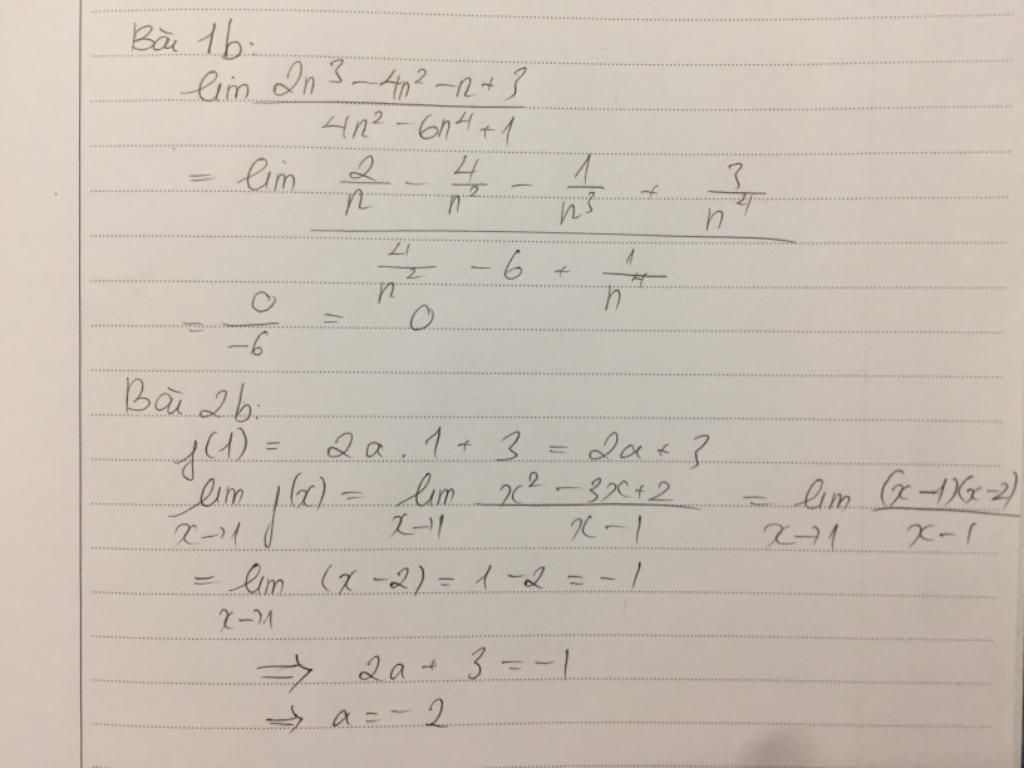 Bài 1b:
lim (2n³ - 4n² - n + 3)/(4n² - 6n⁴ + 1)
= lim (2/n - 4/n² - 1/n³ + 3/n⁴)/(4/n² - 6 + 1/n⁴)
= 0/-6 = 0
Bài 2b:
f(1) = 2a . 1 + 3 = 2a + 3
lim x→1 f(x) = lim x→1 (x² - 3x + 2)/(x - 1) = lim x→1 (x - 1)(x - 2)/(x - 1)
= lim x→1 (x - 2) = 1 - 2 = -1
⇒ 2a + 3 = -1
⇒ a = -2